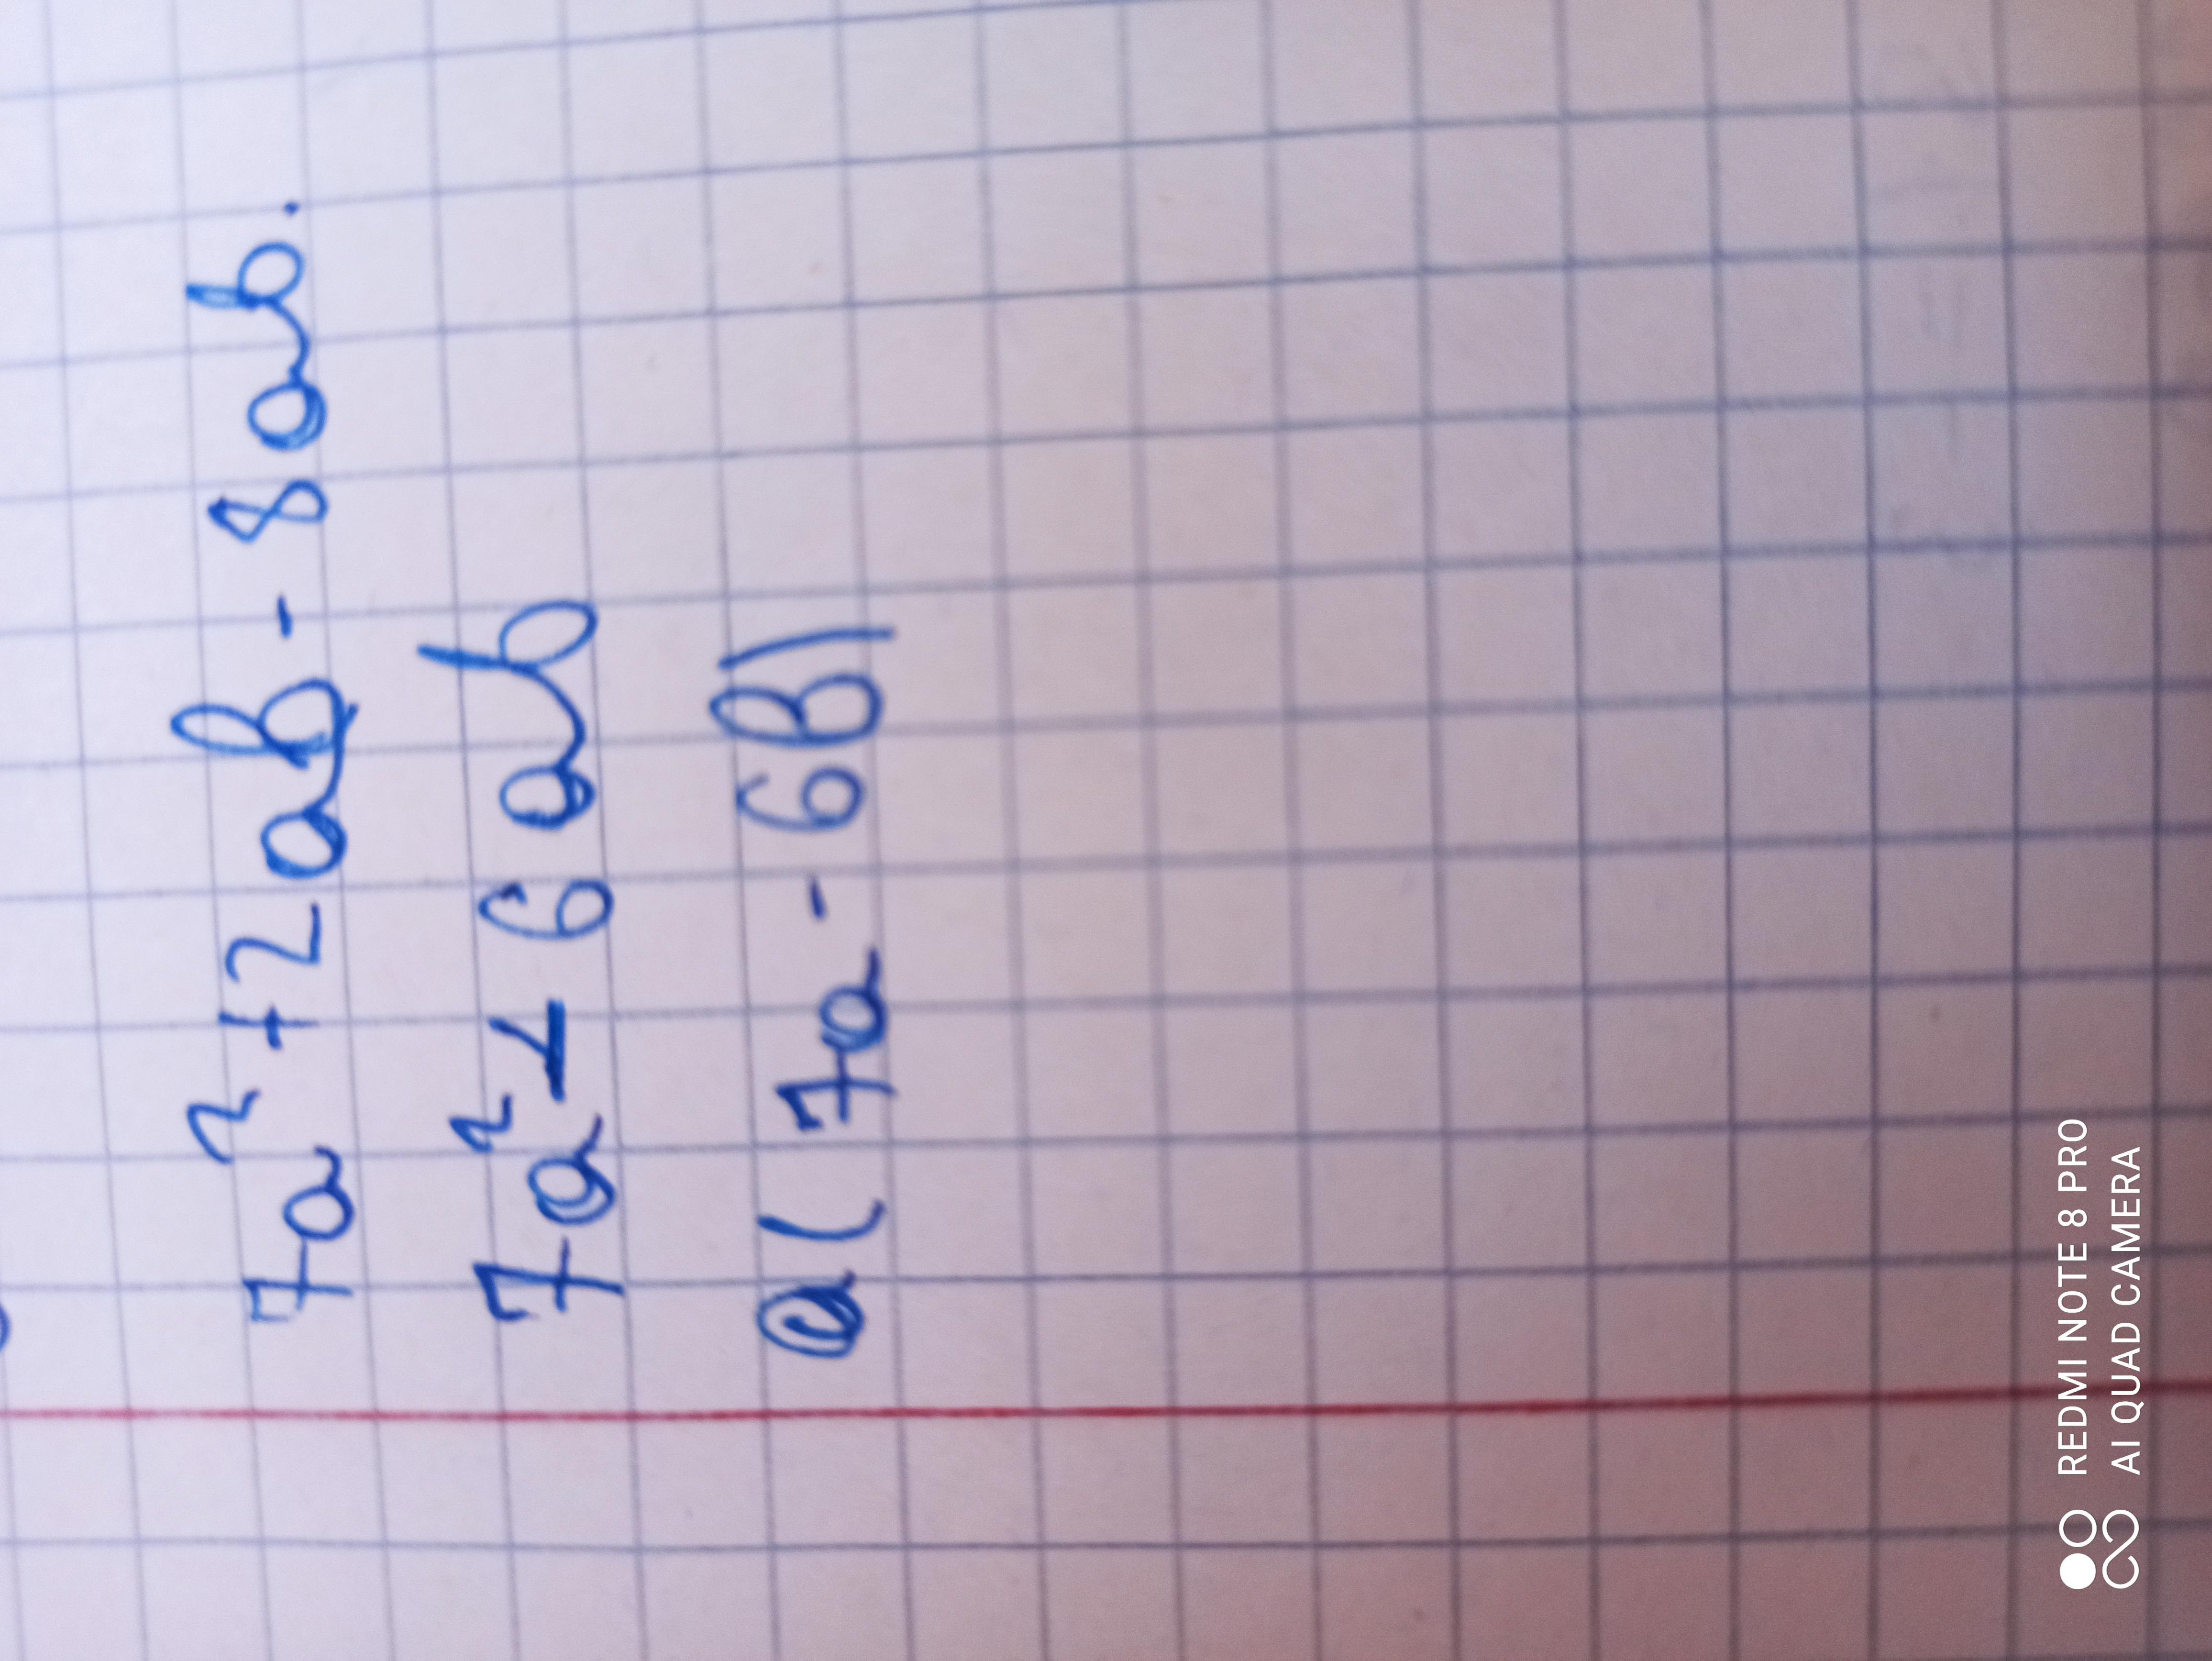 7a² + 2ab - 8ab.
7a² - 6ab
a(7a - 6b)
REDMI NOTE 8 PRO
AI QUAD CAMERA